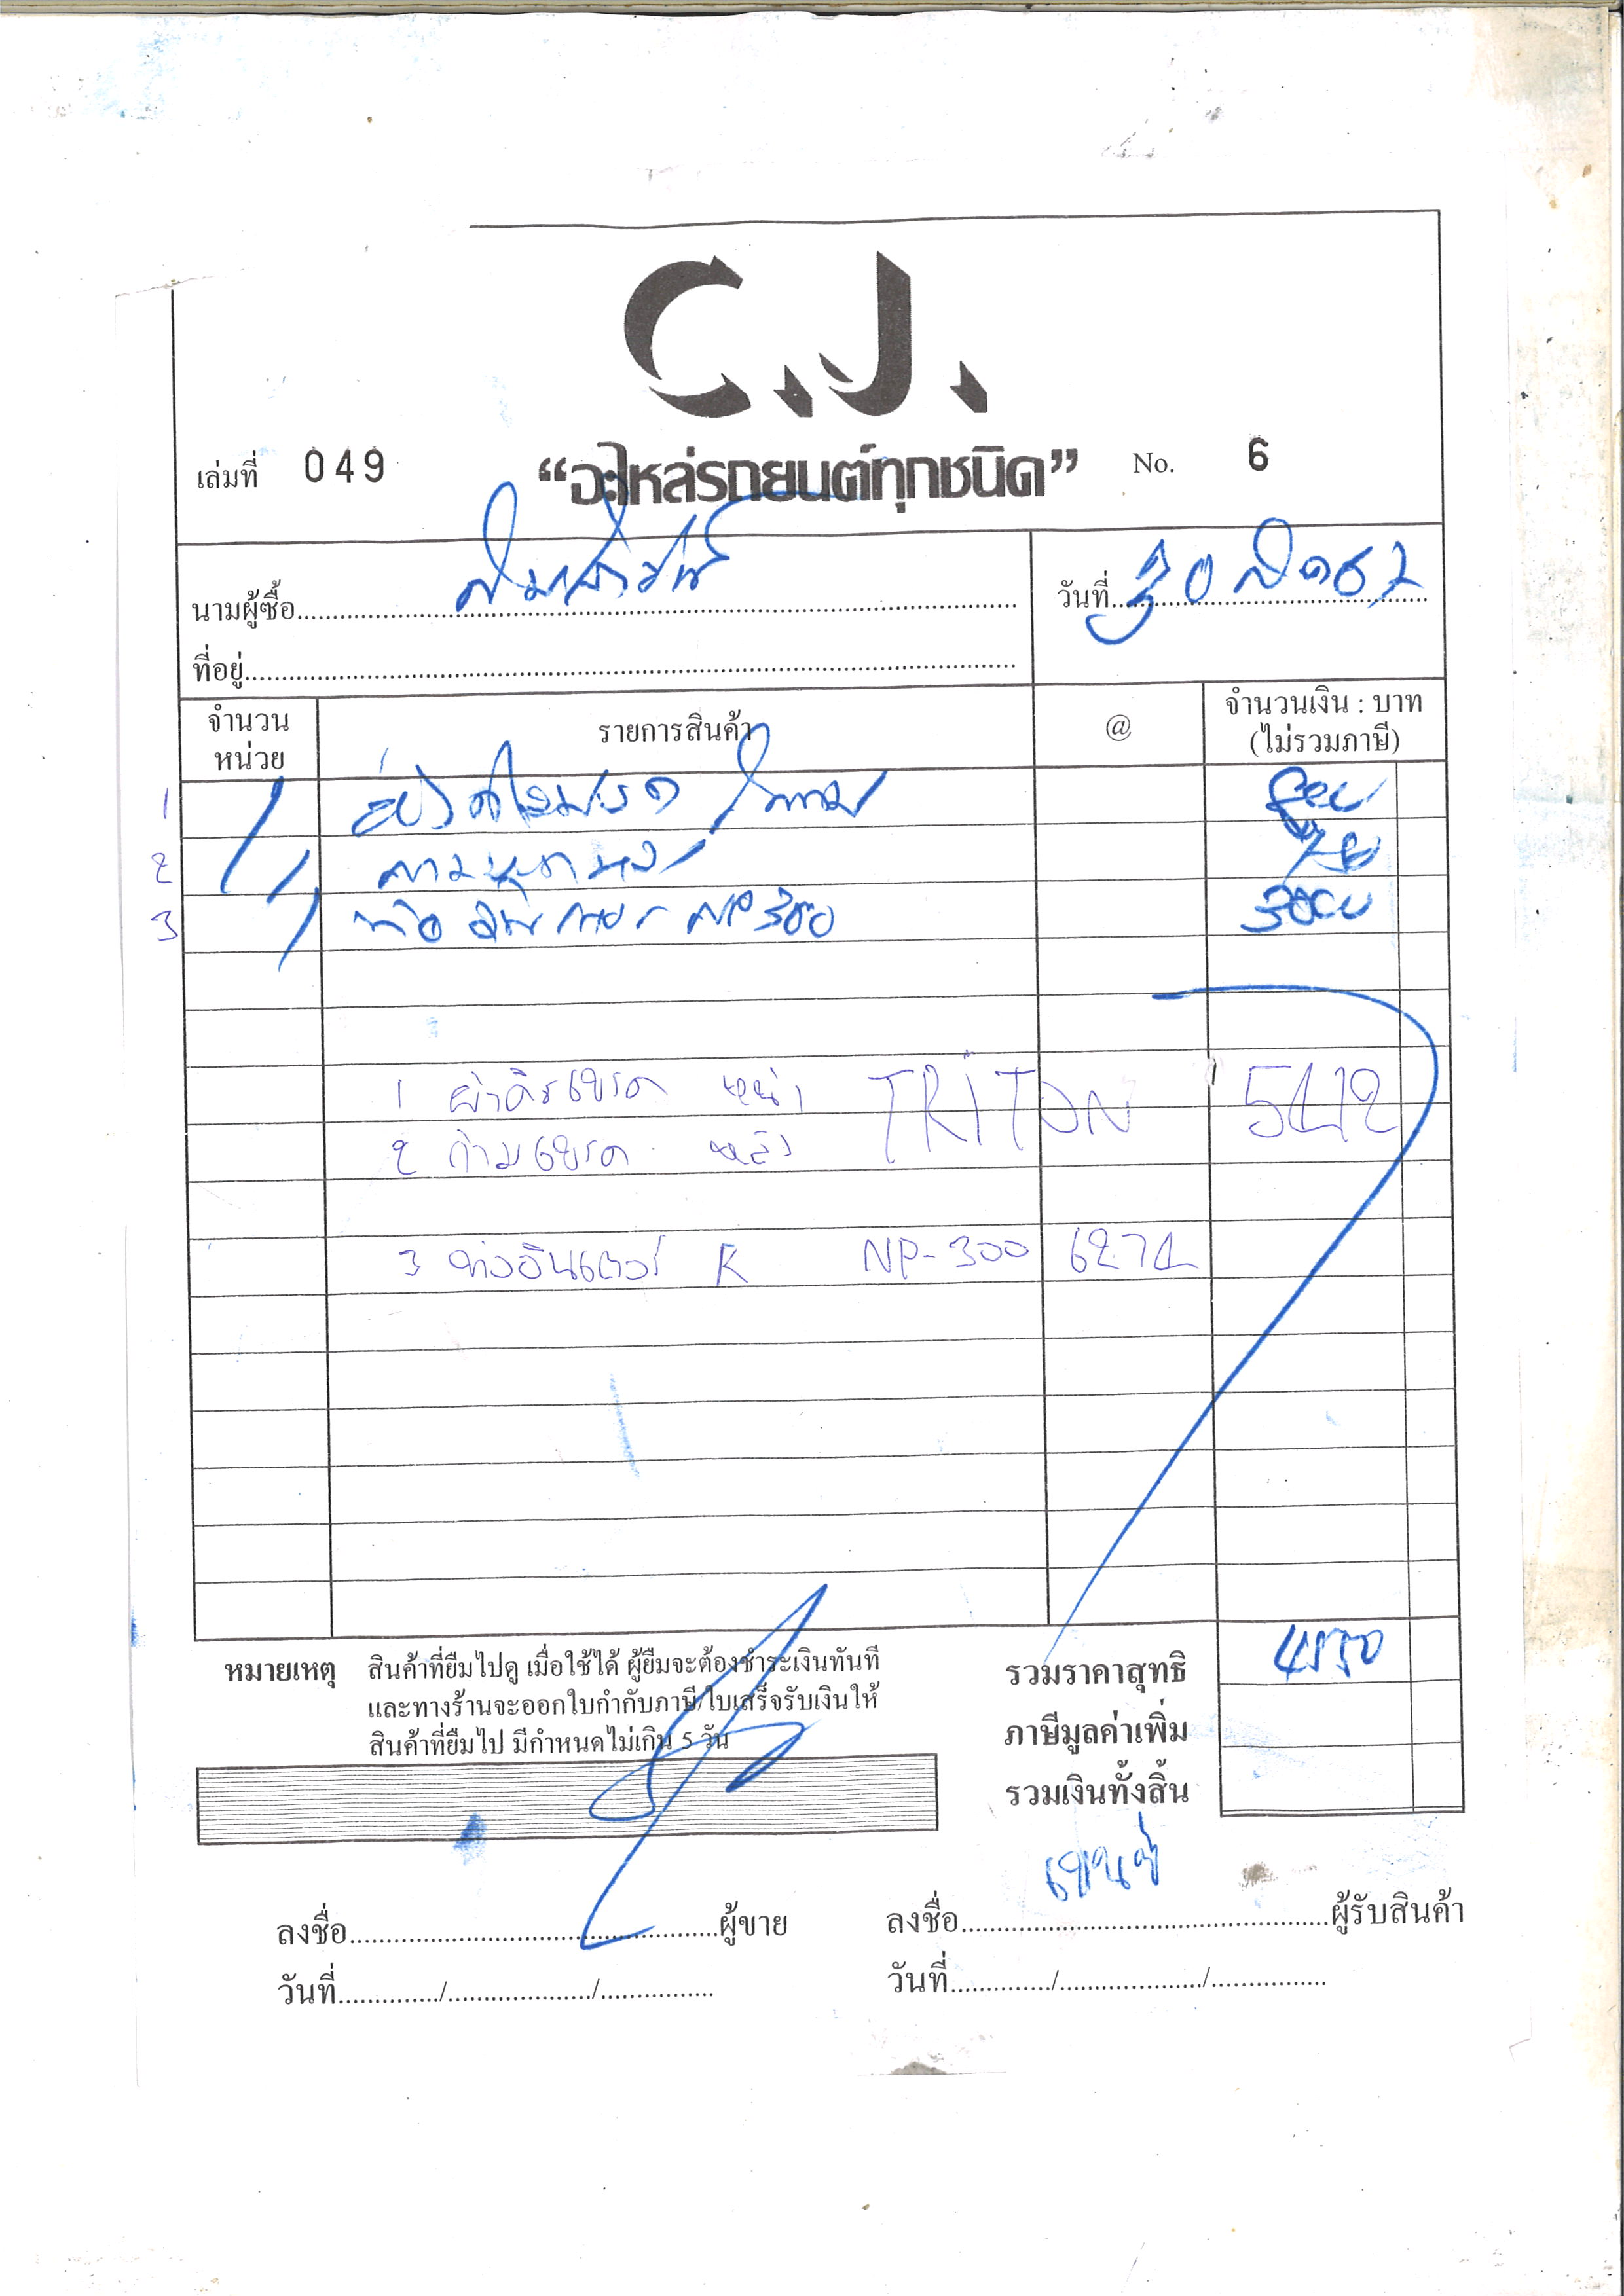 C.J.
เล่มที่ 049 “อะไหล่รถยนต์ทุกชนิด” No. 6
นามผู้ซื้อ วันที่ 30
ที่อยู่
จำนวน หน่วย รายการสินค้า @ จำนวนเงิน : บาท (ไม่รวมภาษี)
1
2
3 NP 300 3000
1 ผ้าดิสเบรค หน้า TRITON 5412
2 ก้ามเบรค หลัง
3 ท่ออินเตอร์ R NP-300 6274
หมายเหตุ สินค้าที่ยืมไปดู เมื่อใช้ได้ ผู้ยืมจะต้องชำระเงินทันที
และทางร้านจะออกใบกำกับภาษี/ใบเสร็จรับเงินให้
สินค้าที่ยืมไป มีกำหนดไม่เกิน 5 วัน
รวมราคาสุทธิ 4550
ภาษีมูลค่าเพิ่ม
รวมเงินทั้งสิ้น
ลงชื่อ ผู้ขาย ลงชื่อ ผู้รับสินค้า
วันที่ / / วันที่ / /